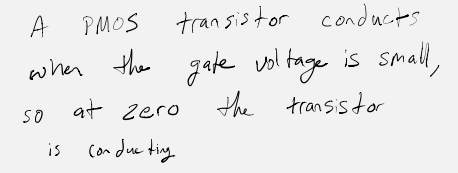 A PMOS transistor conducts
when the gate voltage is small,
so at zero the transistor
is conducting